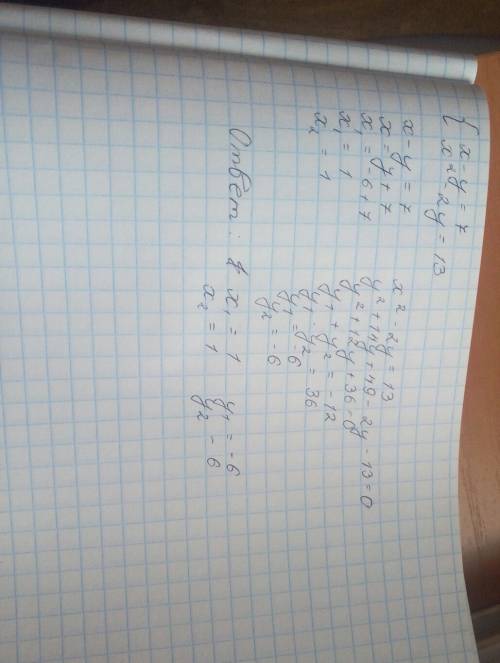 { x - y = 7
x² - 2y = 13
x - y = 7
x = y + 7
x₁ = -6 + 7
x₁ = 1
x₂ = 1
x² - 2y = 13
y² + 14y + 49 - 2y - 13 = 0
y² + 12y + 36 - 0
y₁ + y₂ = -12
y₁ · y₂ = 36
y₁ = -6
y₂ = -6
Ответ: x₁ = 1 y₁ = -6
x₂ = 1 y₂ - 6